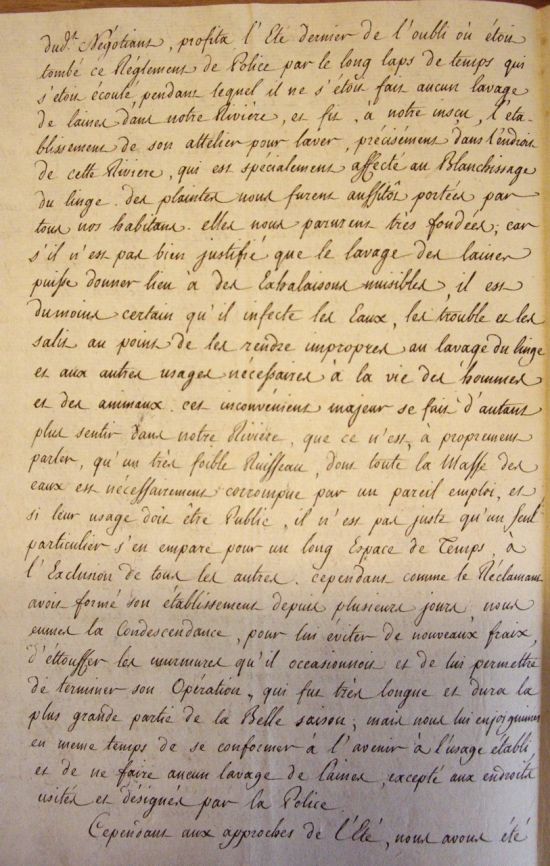 dud.t Négotiant, profita l'Eté dernier de l'oubli où étoit
tombé ce Réglement de Police par le long laps de temps qui
s'étoit écoulé pendant lequel il ne s'étoit fait aucun lavage
de laines dans notre Rivière, et fit, à notre insçu, l'éta-
blissement de son attélier pour laver, précisément dans l'endroit
de cette Rivière, qui est spécialement affecté au Blanchissage
du linge. des plaintes nous furent aussitôt portées par
tous nos habitans. elles nous parurent très fondées; car
s'il n'est pas bien justifié que le lavage des laines
puisse donner lieu à des Exhalaisons nuisibles, il est
dumoins certain qu'il infecte les Eaux, les trouble et les
salit au point de les rendre impropres au lavage du linge
et aux autres usages nécessaires à la vie des hommes
et des animaux. cet inconvénient majeur se fait d'autant
plus sentir dans notre Rivière, que ce n'est, à proprement
parler, qu'un très foible Ruisseau, dont toute la Masse des
eaux est nécessairement corrompue par un pareil emploi, et
si leur usage doit être Public, il n'est pas juste qu'un seul
particulier s'en empare pour un long Espace de Temps, à
l'Exclusion de tous les autres. cependant comme le Réclamant
avoit formé son établissement depuis plusieurs jours nous
eumes la Condescendance, pour lui éviter de nouveaux fraix,
d'étouffer les murmures qu'il occasionnoit et de lui permettre
de terminer son Opération, qui fut très longue et dura la
plus grande partie de la Belle saison; mais nous lui enjoignimes
en meme temps de se conformer à l'avenir à l'usage établi
et de ne faire aucun lavage de Laines, excepté aux endroits
usités et désignés par la Police.
Cependant aux approches de l'Eté, nous avons été